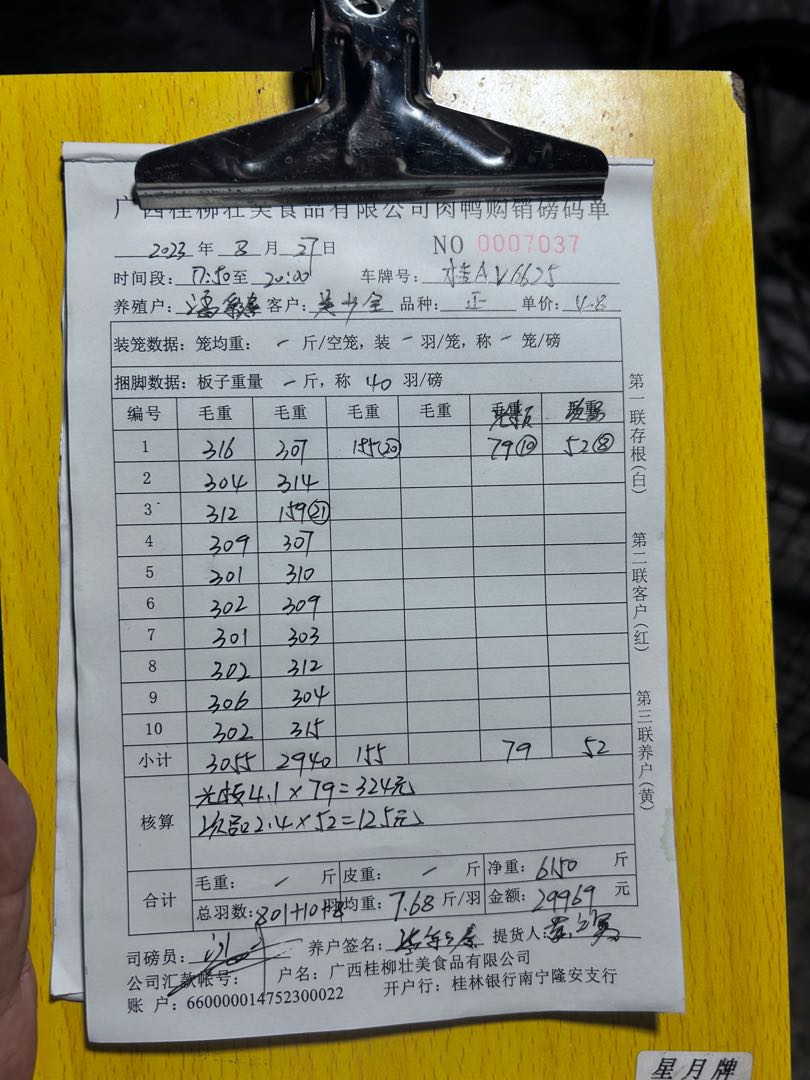 广西桂柳壮美食品有限公司肉鸭购销磅码单
2023 年 8 月 27 日 NO 0007037
时间段: 17:50 至 20:00 车牌号: 桂AV6625
养殖户: 潘 客户: 吴少全 品种: 正 单价: 4.8
装笼数据: 笼均重: - 斤/空笼, 装 - 羽/笼, 称 - 笼/磅
捆脚数据: 板子重量 - 斤, 称 40 羽/磅
编号 毛重 毛重 毛重 毛重
1 316 307 155⑳ 79⑩ 52⑧
2 304 314
3 312 159㉑
4 309 307
5 301 310
6 302 309
7 301 303
8 302 312
9 306 304
10 302 315
小计 3055 2940 155 79 52
核算
4.1×79=324元
次品2.4×52=125元
合计
毛重: - 斤 皮重: - 斤 净重: 6150 斤
总羽数: 801+10+8 羽 均重: 7.68 斤/羽 金额: 29969 元
司磅员: 养户签名: 提货人:
公司汇款帐号: 户名: 广西桂柳壮美食品有限公司
账 户: 660000014752300022 开户行: 桂林银行南宁隆安支行
第一联存根(白)
第二联客户(红)
第三联养户(黄)
星月牌